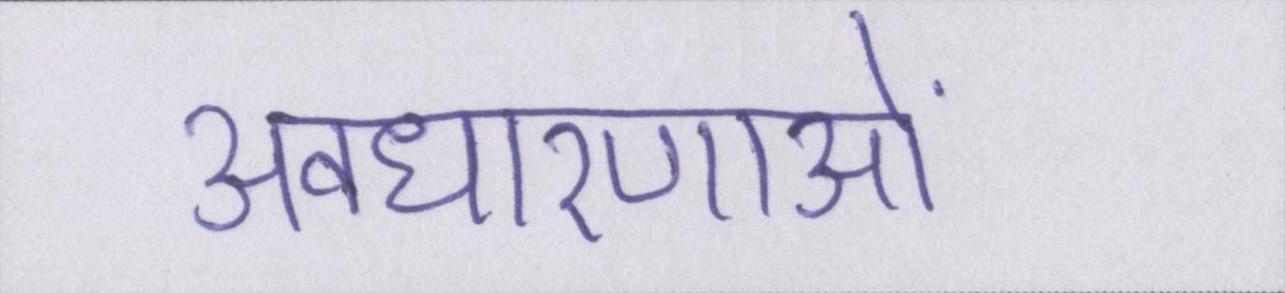 अवधारणाओं